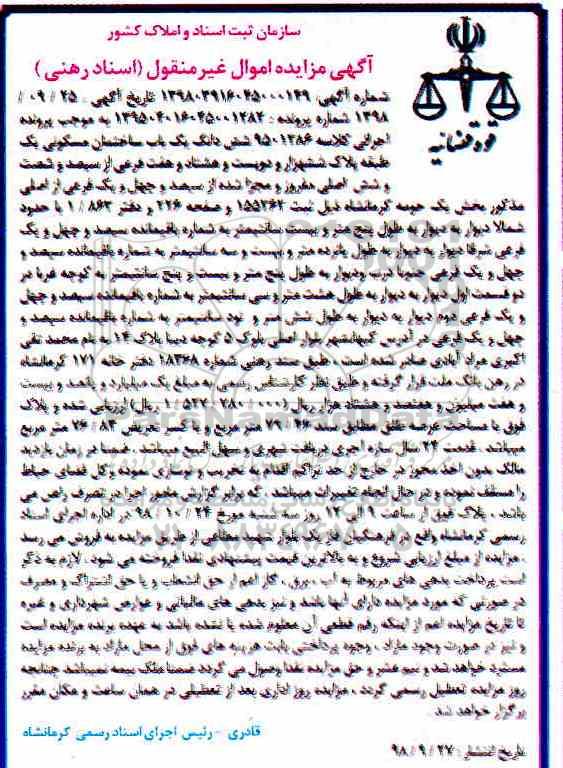 سازمان ثبت اسناد و املاک کشور
آگهی مزایده اموال غیر منقول (اسناد رهنی)
قوه قضائیه
شماره آگهی: تاریخ آگهی: ۲۵ / ۰۹ /
۱۳۹۸ شماره پرونده: به موجب پرونده
اجرائی کلاسه ۹۵۰۱۲۸۶ شش دانگ یک باب ساختمان مسکونی یک
طبقه پلاک ششهزار و دویست و هشتاد و هفت فرعی از سیصد و شصت
و شش اصلی مفروز و مجزا شده از سیصد و چهل و یک فرعی از اصلی
مذکور بخش یک حومه کرمانشاه ذیل ثبت ۱۵۵۲۶۲ و صفحه ۲۲۶ و دفتر ۸۶۳ / ۱ با حدود
شمالا دیوار به دیوار به طول پنج متر و بیست سانتیمتر به شماره باقیمانده سیصد و چهل و یک
فرعی شرقا دیوار به دیوار به طول پانزده متر و بیست و سه سانتیمتر به شماره باقیمانده سیصد و
چهل و یک فرعی جنوبا درب ودیوار به طول پنج متر و بیست و پنج سانتیمتر به کوچه غربا در
دو قسمت اول دیوار به دیوار به طول هشت متر و سی سانتیمتر به شماره باقیمانده سیصد و چهل
و یک فرعی دوم دیوار به دیوار به طول شش متر و نود سانتیمتر به شماره باقیمانده سیصد و
چهل و یک فرعی در آدرس کیهانشهر بلوار اصلی بلوک ۵ کوچه دیبا پلاک ۱۴ به نام محمد تقی
اکبری مراد آبادی صادر شده است، طبق سند رهنی شماره ۲۸۳۶۸ دفتر خانه ۱۷۱ کرمانشاه
در رهن بانک ملت قرار گرفته و طبق نظر کارشناس رسمی به مبلغ یک میلیارد و پانصد و بیست
و هفت میلیون و هفتصد و هشتاد هزار ریال ارزیابی شده و پلاک
فوق با مساحت عرصه طلق مطابق سند ۷۹/۴۶ متر مربع و با کسر تعریض ۷۶/۸۴ متر مربع
میباشد. قدمت ۲۲ سال سازه آجری دریافت شهری و سهل البیع میباشد. ضمنا در زمان بازدید
مالک بدون اخذ مجوز در خارج از حد تراکم اقدام به تخریب و نوسازی نموده وکل فضای حیاط
را مسقف نموده و در حال انجام تغییرات میباشد. که برابر گزارش مامور اجرا در تصرف راهن می
باشد. پلاک فوق از ساعت ۹ الی ۱۲ روز سه شنبه مورخ ۲۴ / ۱۰ / ۹۸ در اداره اجرای اسناد
رسمی کرمانشاه واقع در فرهنگیان فاز یک بلوار شهید مطاعی از طریق مزایده به فروش می رسد
. مزایده از مبلغ ارزیابی شروع و به بالاترین قیمت پیشنهادی نقدا فروخته می شود. لازم به ذکر
است پرداخت بدهی های مربوط به آب، برق، گاز اعم از حق انشعاب و یا حق اشتراک و مصرف
در صورتی که مورد مزایده دارای آنها باشد و نیز بدهی های مالیاتی و عوارض شهرداری و غیره
تا تاریخ مزایده اعم از اینکه رقم قطعی آن معلوم شده یا نشده باشد به عهده برنده مزایده است
و نیز در صورت وجود مازاد، وجوه پرداختی بابت هزینه های فوق از محل مازاد به برنده مزایده
مسترد خواهد شد و نیم عشر و حق مزایده نقدا وصول می گردد ضمنا ملک بیمه نمیباشد چنانچه
روز مزایده تعطیل رسمی گردد، مزایده روز اداری بعد از تعطیلی در همان ساعت و مکان مقرر
برگزار خواهد شد.
قادری - رئیس اجرای اسناد رسمی کرمانشاه
تاریخ انتشار: ۲۷ / ۹ / ۹۸